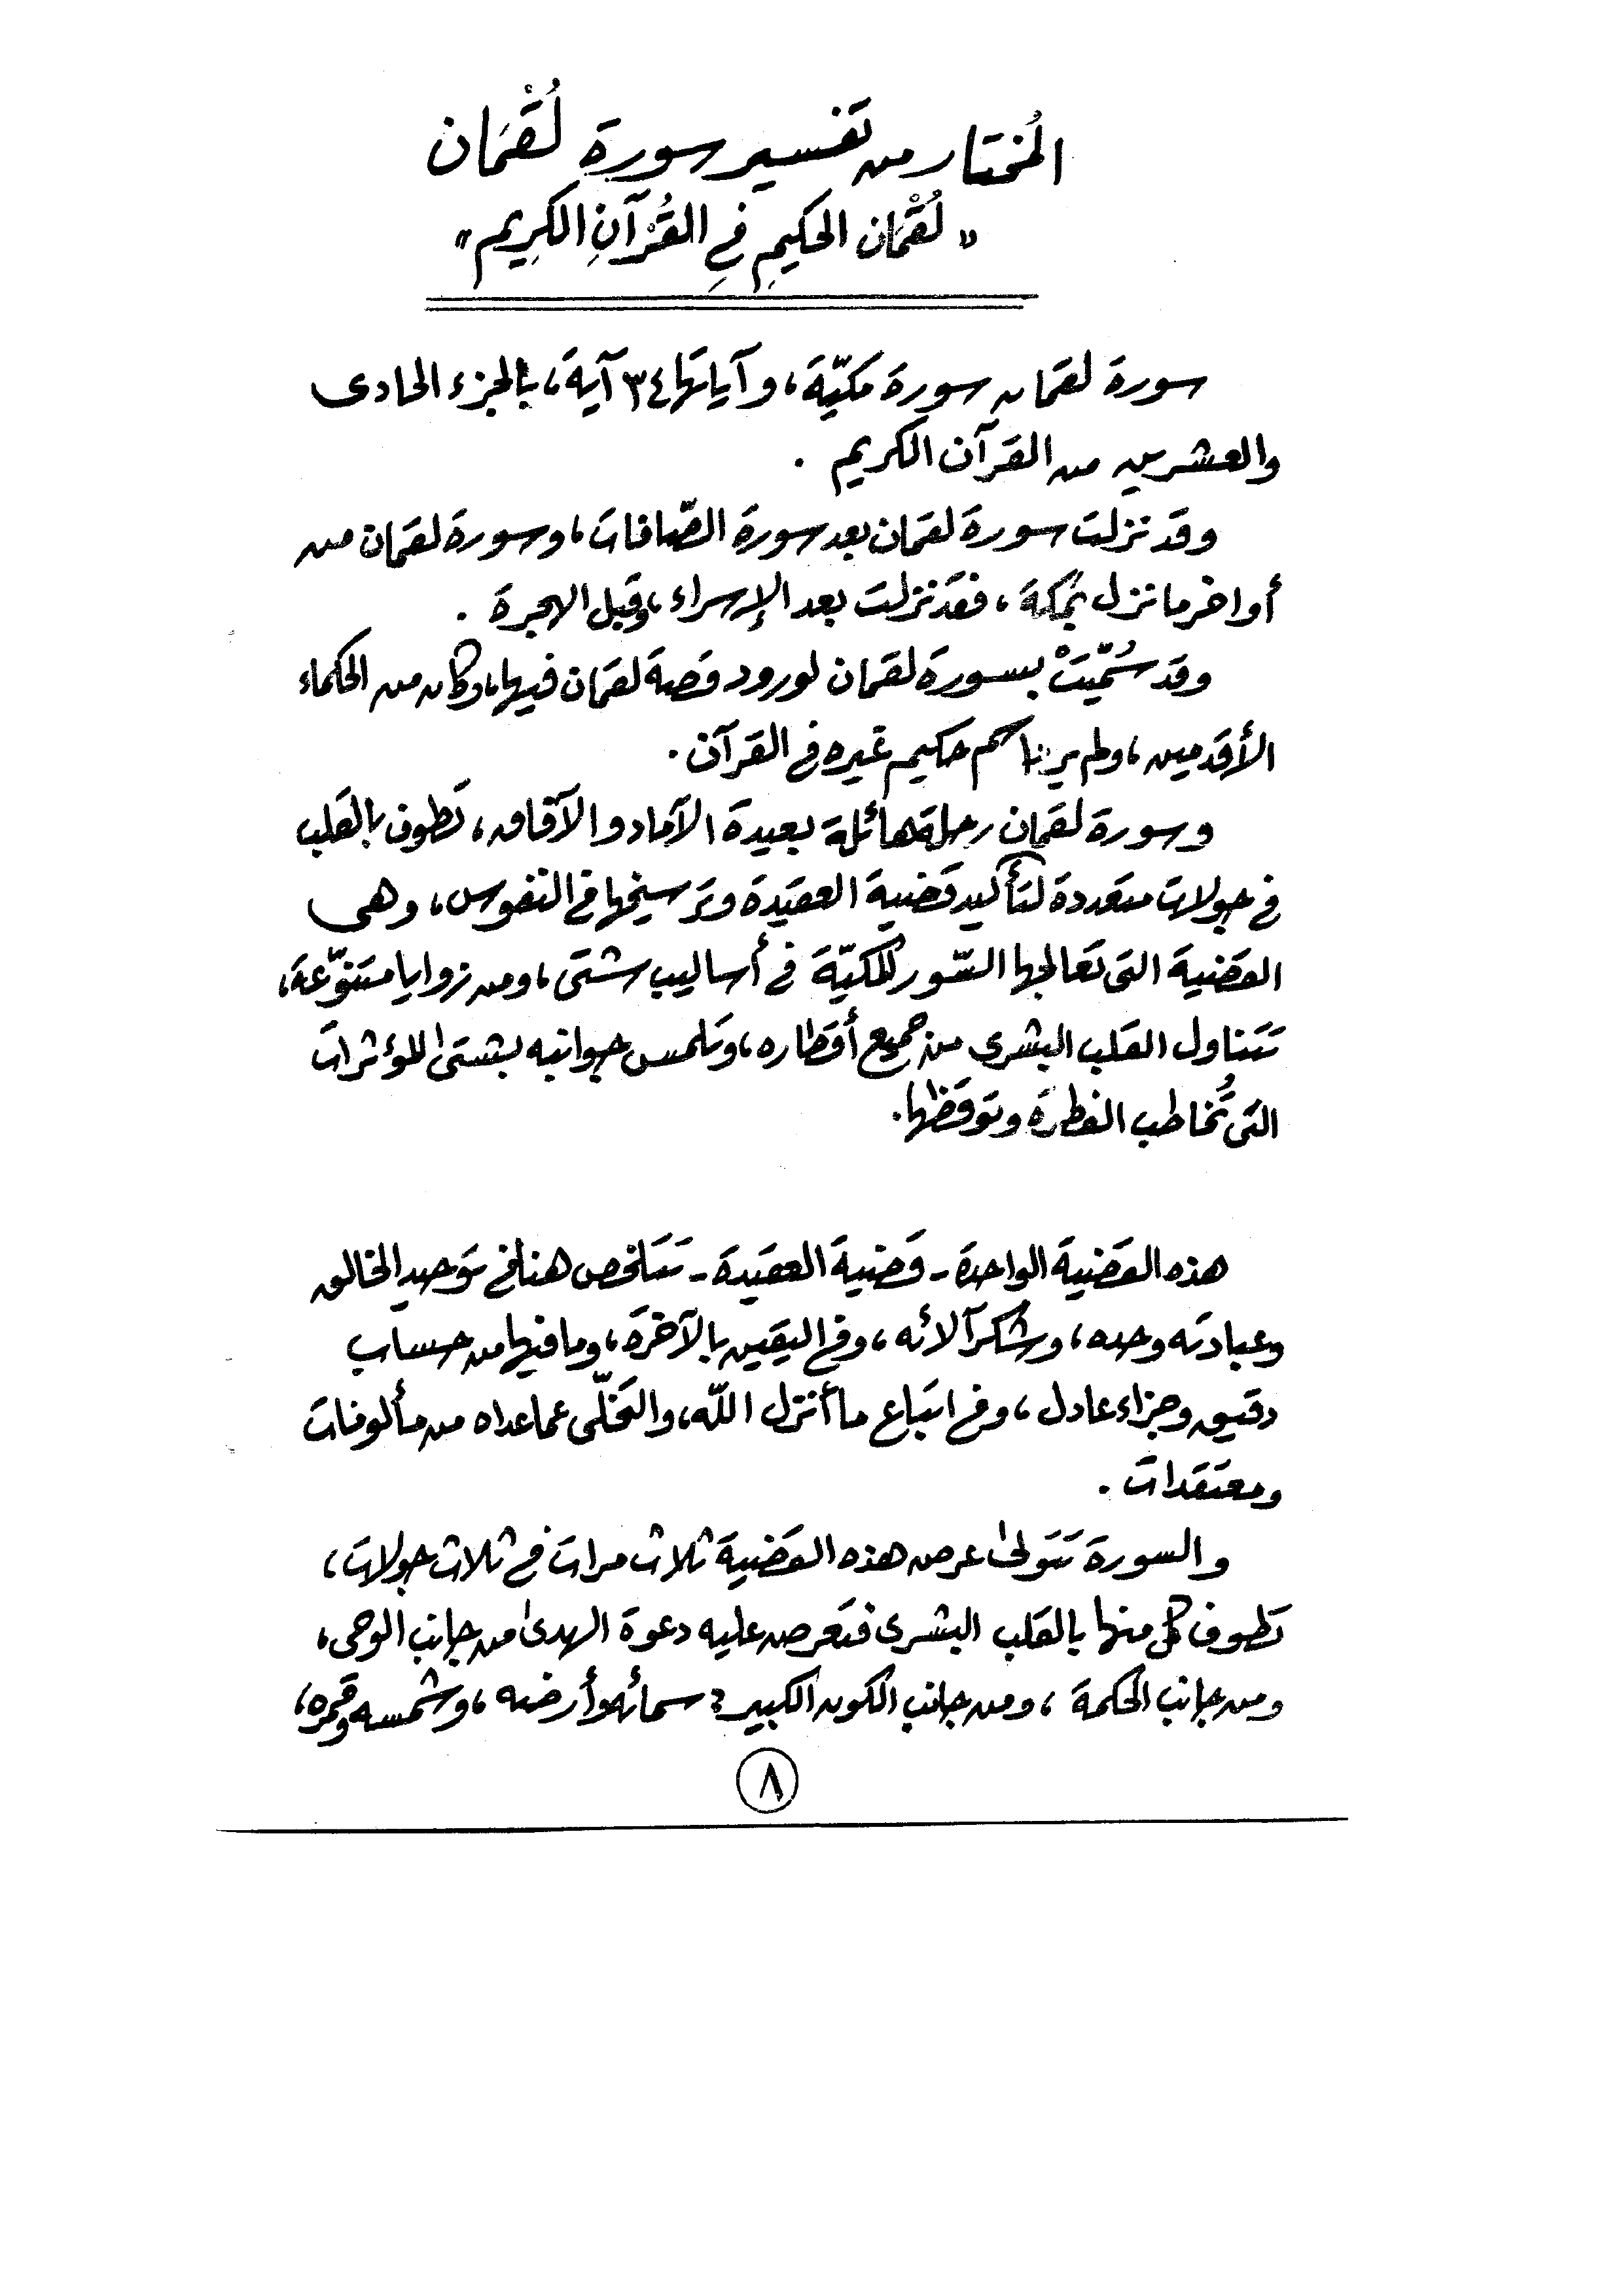 المُختار من تفسير سورةِ لُقْمَان
" لُقْمَان الحكيمِ فِي القُرْآنِ الكِرِيم "
سورة لقمان سورة مكيّة، وآياتها ٣٤ آية، بالجزء الحادى
والعشرين من القرآن الكريم .
وقد نزلت سورة لقمان بعد سورة الصّافات، وسورة لقمان من
أواخر ما نزل بمكة، فقد نزلت بعد الإسراء، وقبل الهجرة .
وقد سُمّيَتْ بسورة لقمان لورود قصة لقمان فيها، وكان من الحكماء
الأقدمين، ولم يرد اسم حكيم غيره فى القرآن .
وسورة لقمان رحلة هائلة بعيدة الآماد والآفاق، تطوف بالقلب
فى جولات متعددة لتأكيد قضية العقيدة وترسيخها فى النفوس، وهى
القضية التى تعالجها السّور المكيّة فى أساليب شتى، ومن زوايا متنوّعة،
تتناول القلب البشرى من جميع أقطاره، وتلمس جوانبه بشتى المؤثرات
التى تُخاطب الفطرة وتوقظها.
هذه القضية الواحدة - قضية العقيدة - تتلخص هنا فى توحيد الخالق
وعبادته وحده، وشكر آلائه، وفى اليقين بالآخرة، وما فيها من حساب
دقيق وجزاء عادل، وفى اتباع ما أنزل اللّه، والتخلّى عما عداه من مألوفات
ومعتقدات .
والسورة تتولى عرض هذه القضية ثلاث مرات فى ثلاث جولات،
تطوف كل منها بالقلب البشرى فتعرض عليه دعوة الهدى من جانب الوحى،
ومن جانب الحكمة، ومن جانب الكون الكبير: سمائه وأرضه، وشمسه وقمره،
٨